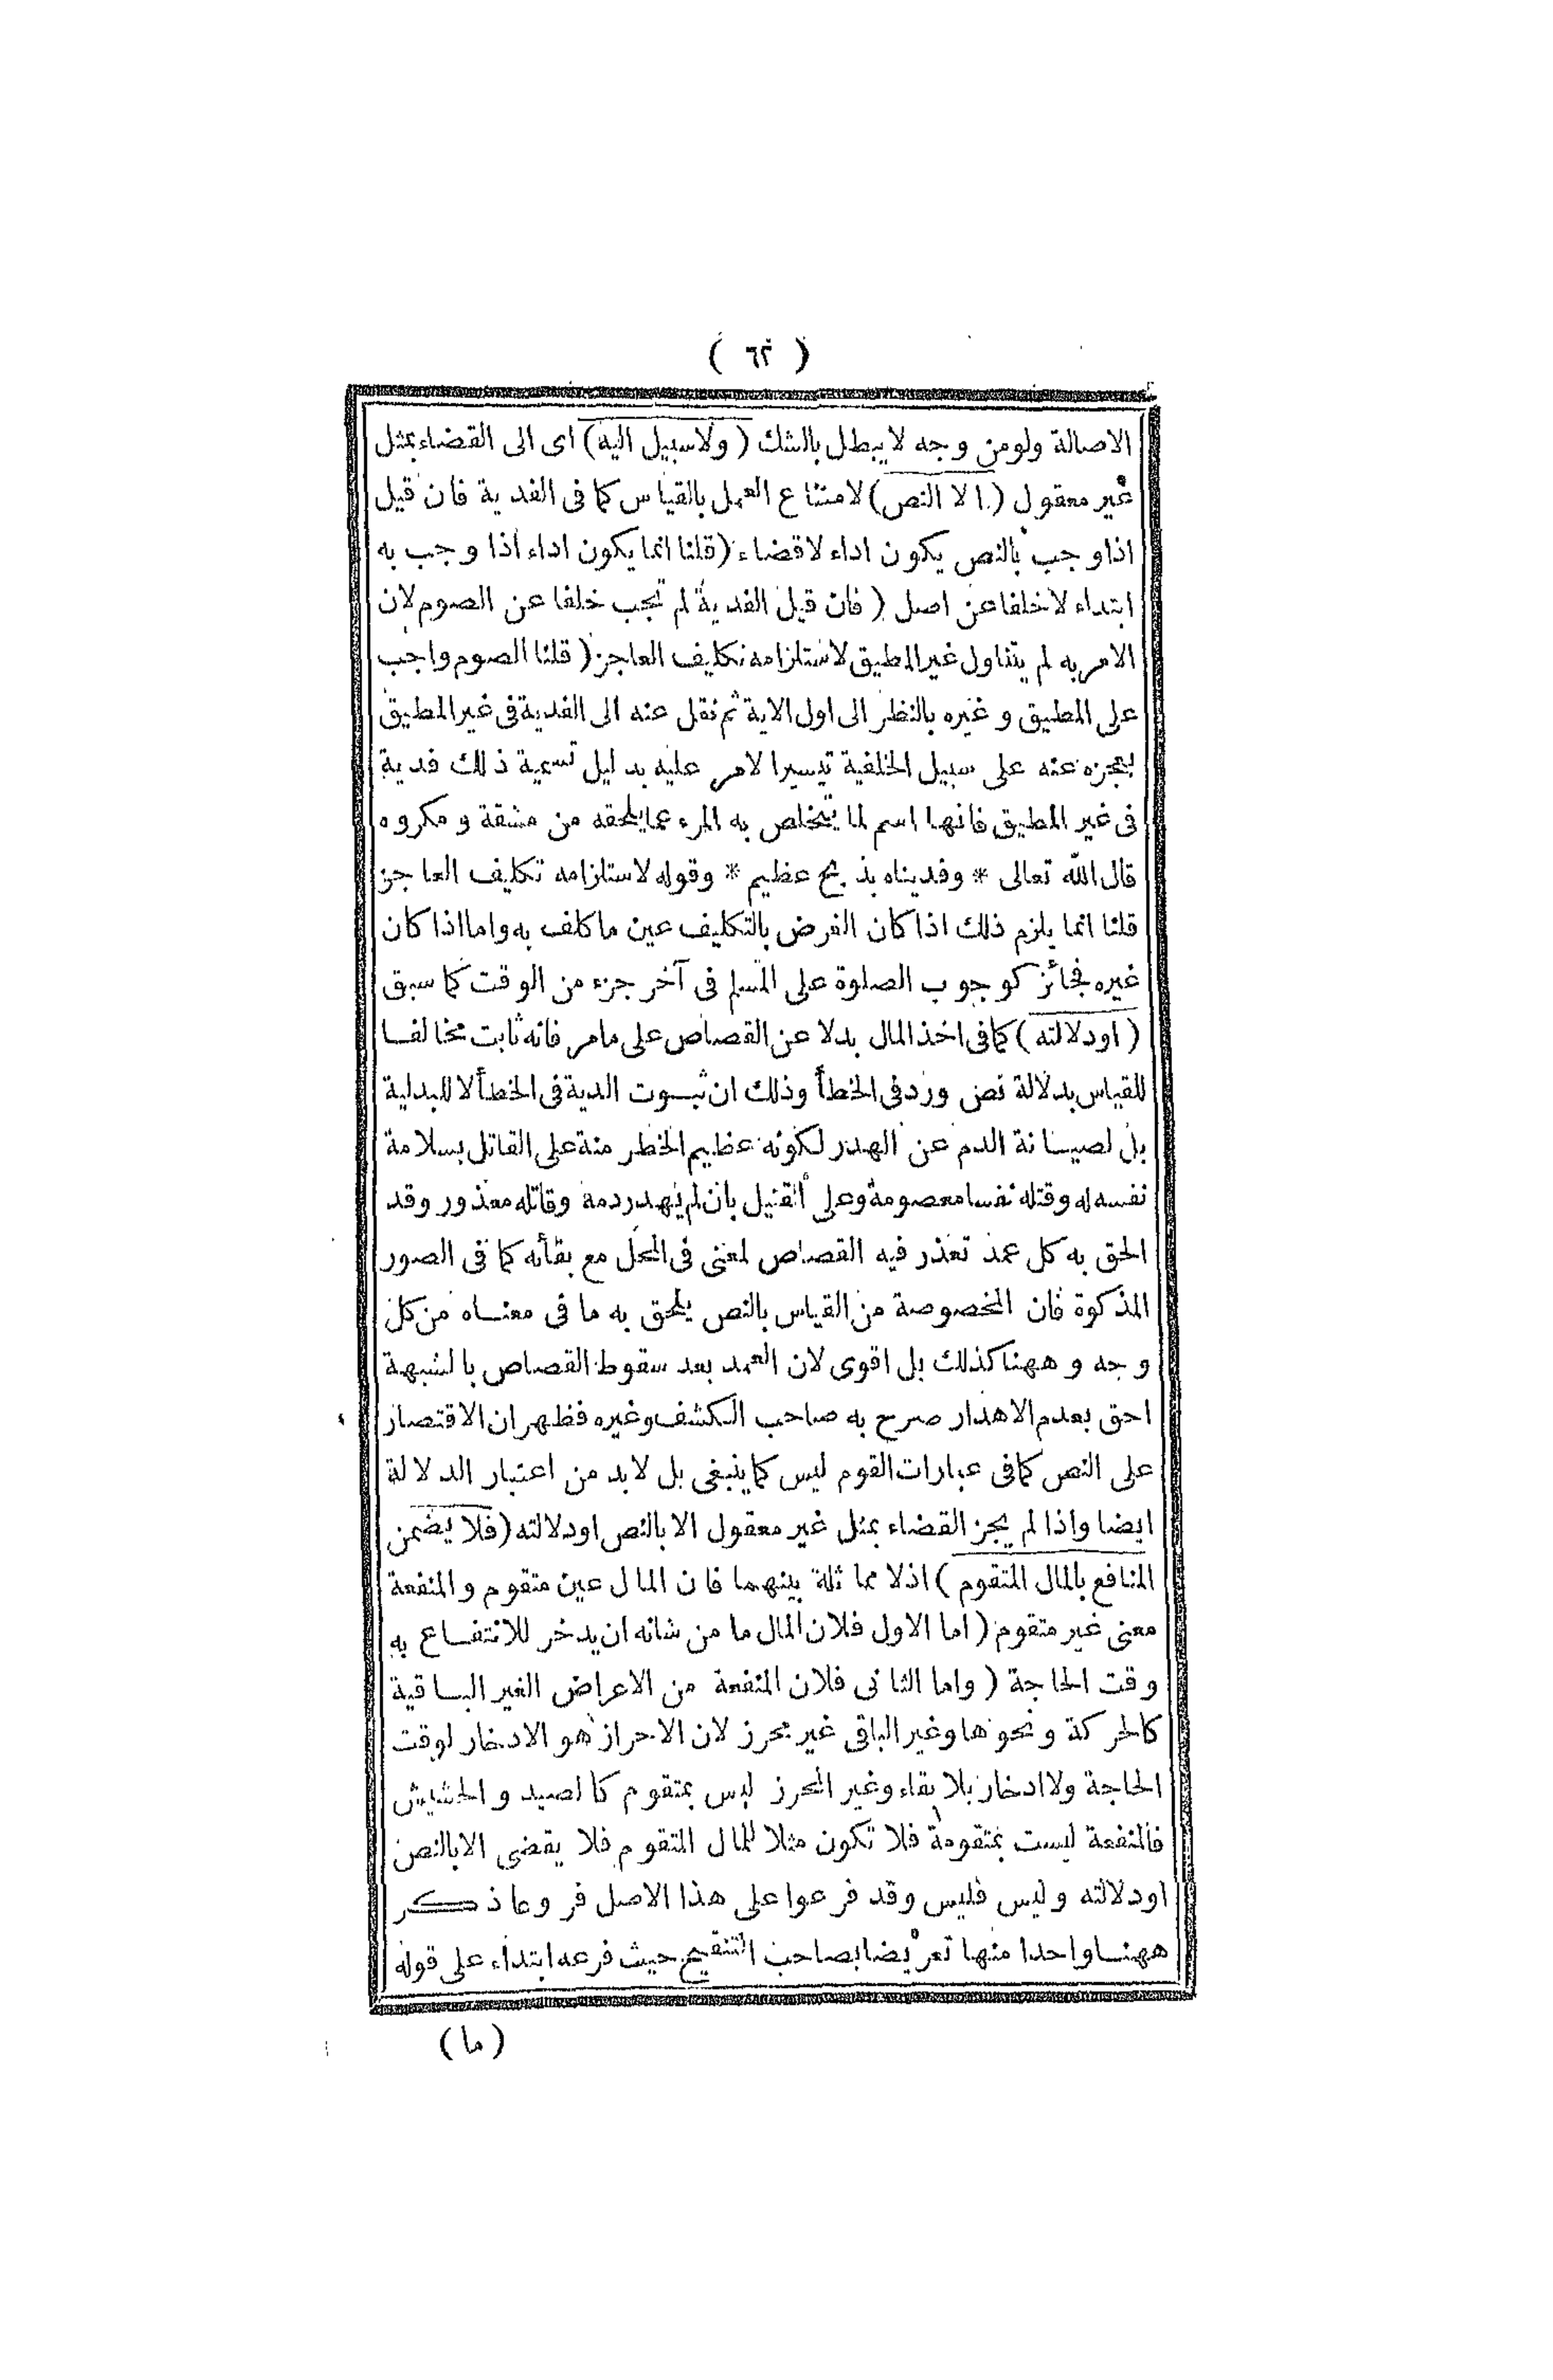 ( ٦٢ )
الاصالة ولو من وجه لا يبطل بالشك ( ولا سبيل اليه ) اى الى القضاء بمثل
غير معقول ( الا النص ) لامتناع العمل بالقياس كما فى الفدية فان قيل
اذا وجب بالنص يكون اداء لا قضاء ( قلنا انما يكون اداء اذا وجب به
ابتداء لا خلفا عن اصل ( فان قيل الفدية لم تجب خلفا عن الصوم لان
الامر به لم يتناول غير المطيق لاستلزامه تكليف العاجز ( قلنا الصوم واجب
على المطيق و غيره بالنظر الى اول الاية ثم نقل عنه الى الفدية فى غير المطيق
لعجزه عنه على سبيل الخلفية تيسيرا لامر عليه بدليل تسمية ذلك فدية
فى غير المطيق فانها اسم لما يتخلص به المرء عما يلحقه من مشقة و مكروه
قال الله تعالى * وفديناه بذبح عظيم * وقوله لاستلزامه تكليف العاجز
قلنا انما يلزم ذلك اذا كان الغرض بالتكليف عين ما كلف به واما اذا كان
غيره فجائز كوجوب الصلوة على المسلم فى آخر جزء من الوقت كما سبق
( او دلالته ) كما فى اخذ المال بدلا عن القصاص على مامر فانه ثابت مخالفا
للقياس بدلالة نص ورد فى الخطأ وذلك ان ثبوت الدية فى الخطأ لا للبدلية
بل لصيانة الدم عن الهدر لكونه عظيم الخطر منة على القاتل بسلامة
نفسه له وقتله نفسا معصومة وعلى القتيل بان لم يهدر دمه وقاتله معذور وقد
الحق به كل عمد تعذر فيه القصاص لمعنى فى المحل مع بقائه كما فى الصور
المذكوة فان المخصوصة من القياس بالنص يلحق به ما فى معناه من كل
وجه و ههنا كذلك بل اقوى لان العمد بعد سقوط القصاص بالشبهة
احق بعدم الاهدار صرح به صاحب الكشف وغيره فظهر ان الاقتصار
على النص كما فى عبارات القوم ليس كما ينبغى بل لا بد من اعتبار الدلالة
ايضا واذا لم يجز القضاء بمثل غير معقول الا بالنص او دلالته ( فلا يضمن
المنافع بالمال المتقوم ) اذ لا مماثلة بينهما فان المال عين متقوم والمنفعة
معنى غير متقوم ( اما الاول فلان المال ما من شانه ان يدخر للانتفاع به
وقت الحاجة ( واما الثانى فلان المنفعة من الاعراض الغير الباقية
كالحركة و نحوها وغير الباقى غير محرز لان الاحراز هو الادخار لوقت
الحاجة ولا ادخار بلا بقاء وغير المحرز ليس بمتقوم كالصيد والحشيش
فالمنفعة ليست بمتقومة فلا تكون مثلا للمال المتقوم فلا يقضى الا بالنص
او دلالته وليس فليس وقد فرعوا على هذا الاصل فروعا ذكر
ههنا واحدا منها تعريضا بصاحب التنقيح حيث فرعه ابتداء على قوله
( ما )